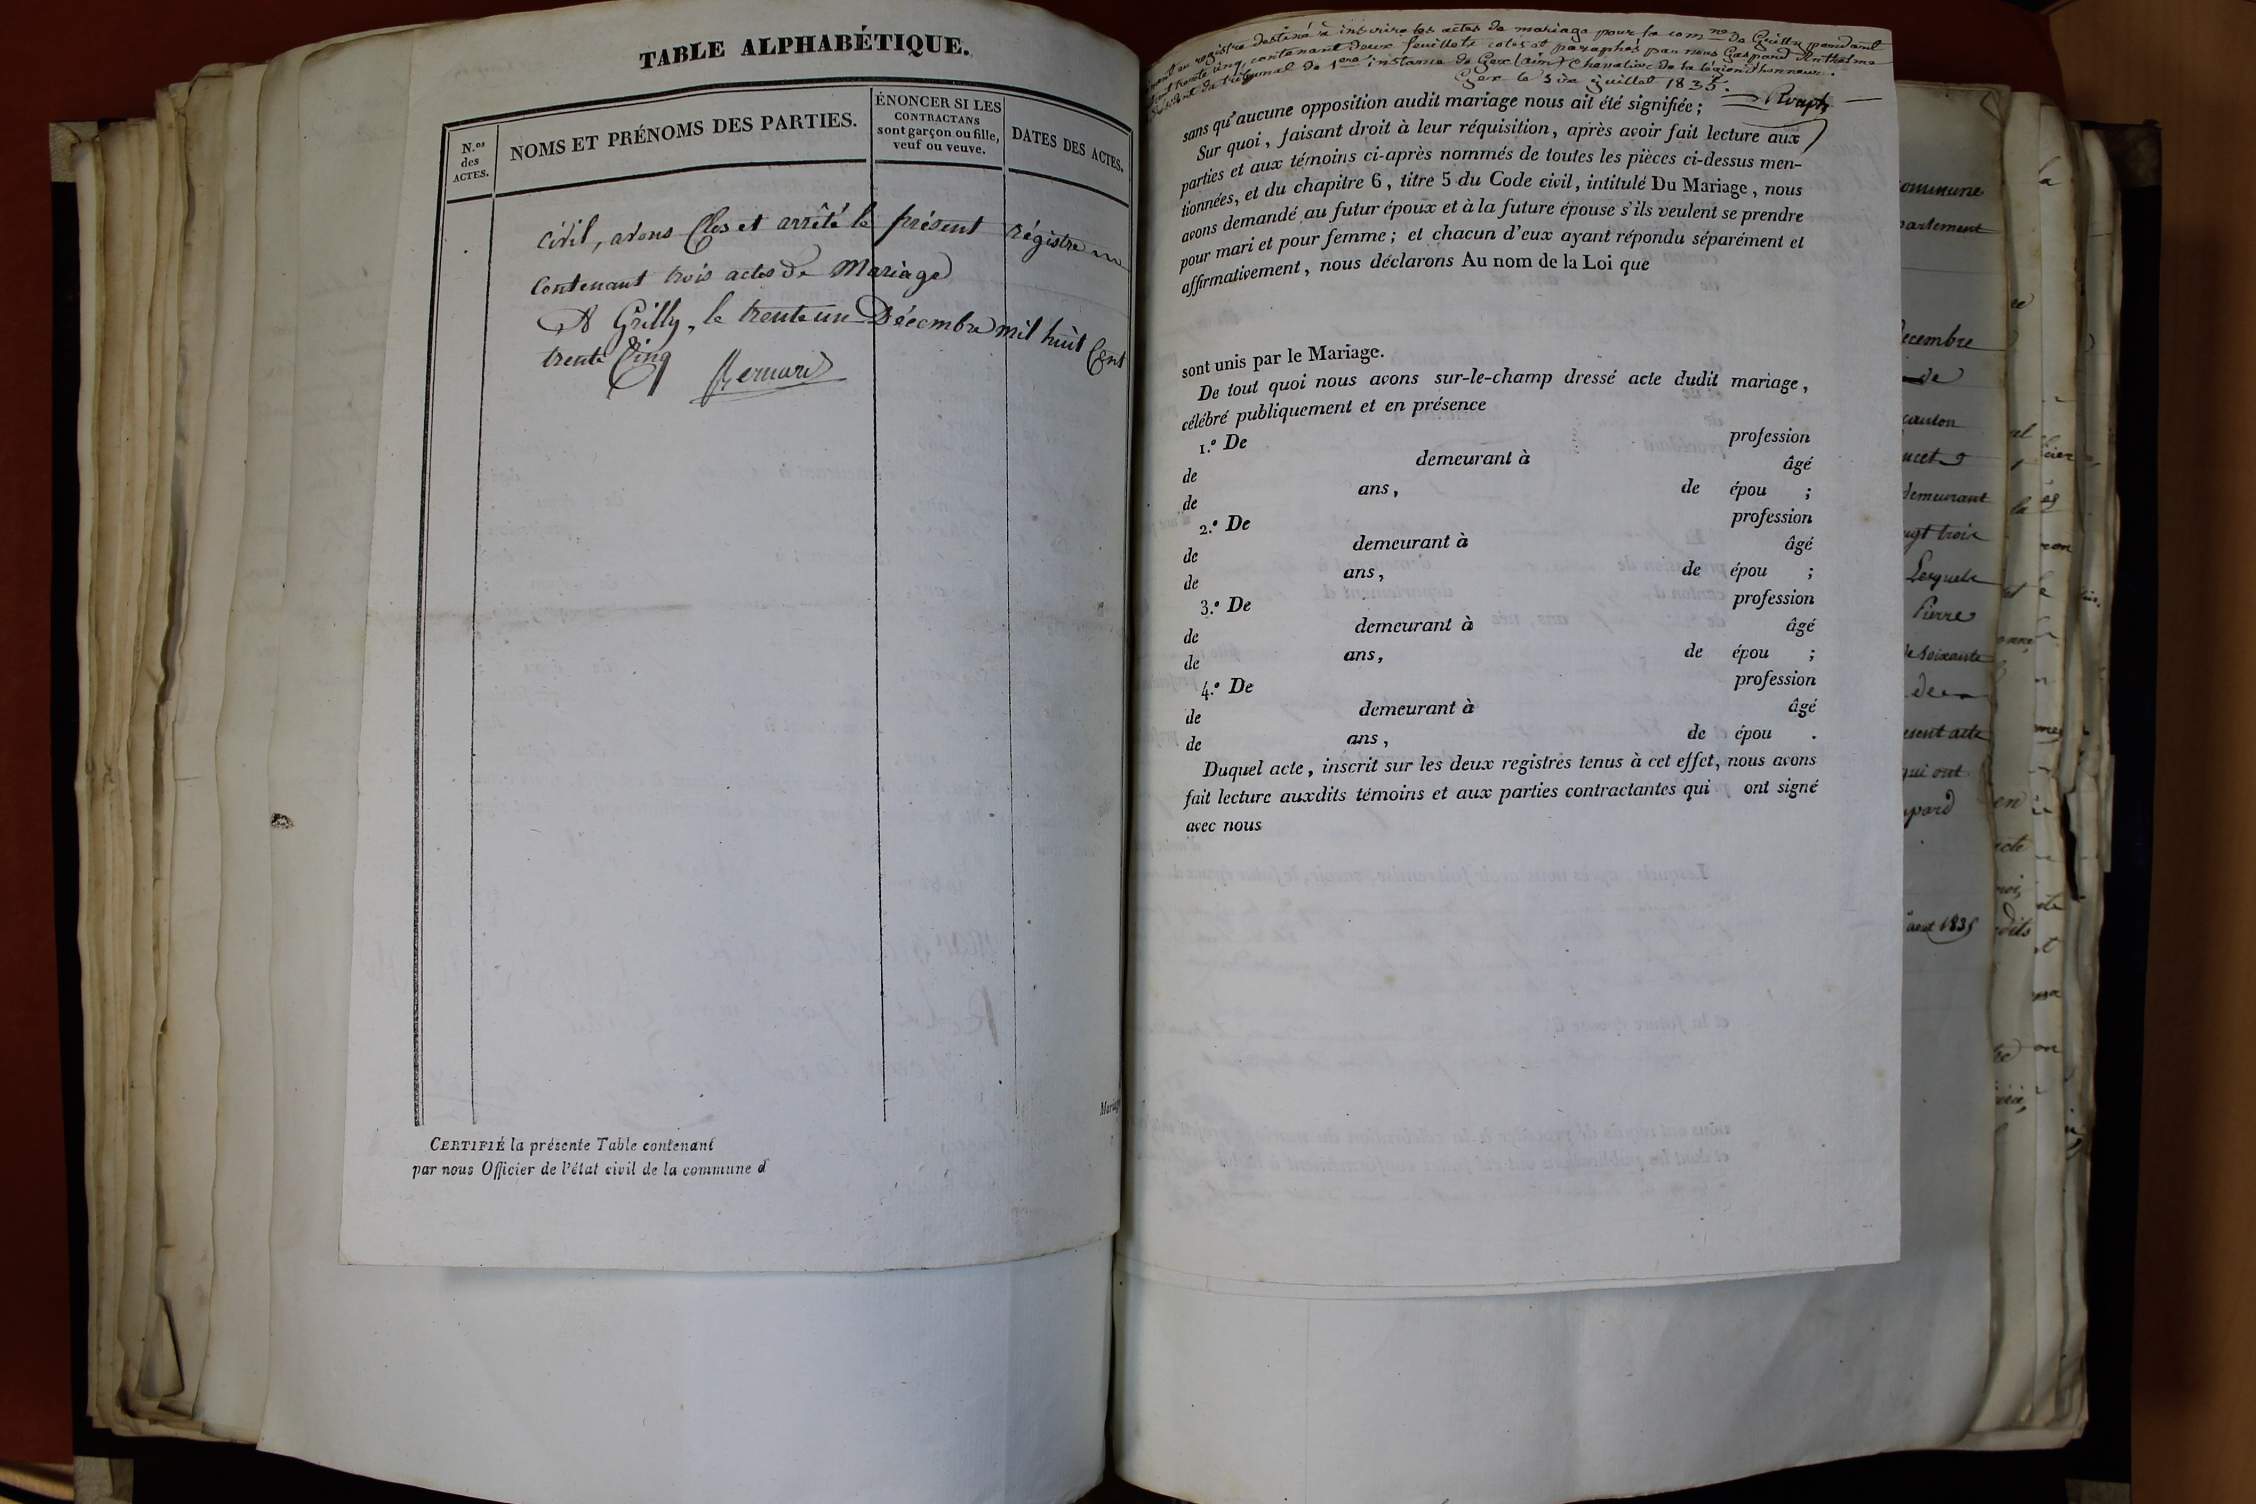 TABLE ALPHABÉTIQUE.
N.os des ACTES.
NOMS ET PRÉNOMS DES PARTIES.
ÉNONCER SI LES
CONTRACTANS
sont garçon ou fille,
veuf ou veuve.
DATES DES ACTES.
civil, avons Clos et arrêté le présent régistre
contenant trois actes de Mariage
A Grilly, le trente un Décembre mil huit Cent
trente Cinq Bernard
Mariage
CERTIFIÉ la présente Table contenant
par nous Officier de l'état civil de la commune d
registre destiné à inscrire les actes de mariage pour la com.ne de Grilly pendant
trente cinq, contenant deux feuillets cotés et paraphés par nous Gaspard Anthelme
du tribunal de 1ere instance de Gex (ain) Chevalier de la légion d'honneur.
Gex le juillet 1835.
sans qu'aucune opposition audit mariage nous ait été signifiée;
Sur quoi, faisant droit à leur réquisition, après avoir fait lecture aux
parties et aux témoins ci-après nommés de toutes les pièces ci-dessus men-
tionnées, et du chapitre 6, titre 5 du Code civil, intitulé Du Mariage, nous
avons demandé au futur époux et à la future épouse s'ils veulent se prendre
pour mari et pour femme; et chacun d'eux ayant répondu séparément et
affirmativement, nous déclarons Au nom de la Loi que
sont unis par le Mariage.
De tout quoi nous avons sur-le-champ dressé acte dudit mariage,
célébré publiquement et en présence
1.º De profession
de demeurant à âgé
de ans, de épou ;
2.º De profession
de demeurant à âgé
de ans, de épou ;
3.º De profession
de demeurant à âgé
de ans, de épou ;
4.º De profession
de demeurant à âgé
de ans, de épou .
Duquel acte, inscrit sur les deux registres tenus à cet effet, nous avons
fait lecture auxdits témoins et aux parties contractantes qui ont signé
avec nous
commune
partement
ecembre
de
canton
demeurant
ngt trois
Lesquels
Pierre
de soixante
de
esent acte
qui ont
août 1835